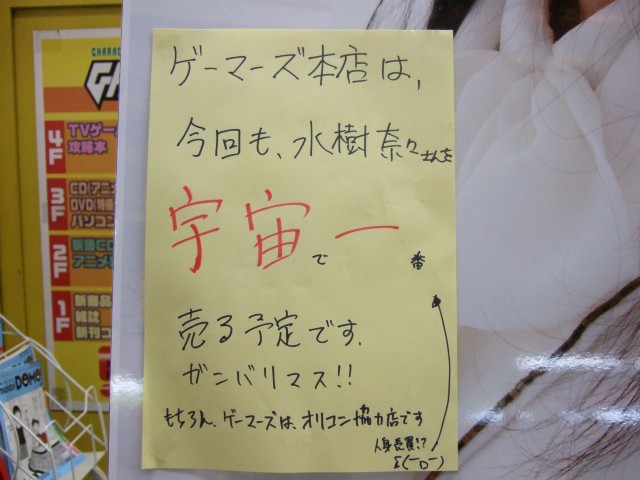 ゲーマーズ本店は,
今回も、水樹奈々さんを
宇宙で一番
売る予定です.
ガンバリマス!!
もちろん、ゲーマーズは、オリコン協力店です
人身売買!?
Σ(ーDー)
CHARAC
GA
4F TVゲー
攻略本
3F CD(アニメ
DVD(特撮
パソコン
2F 新譜CD
アニメ
1F 新商品
雑誌
新刊コ
DOMO!